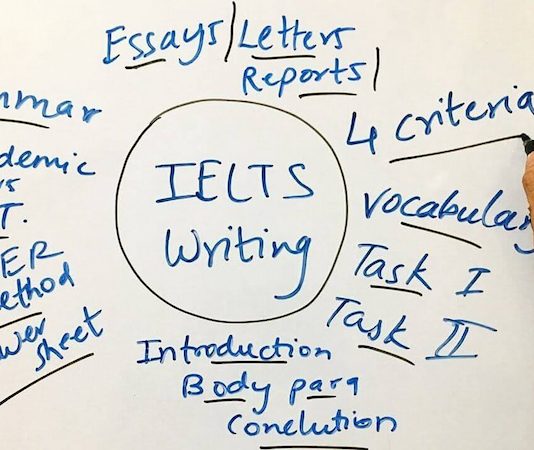 Essays/Letters
Reports/
mmar
demic
vs
T.
ER
ethod
wer
sheet
IELTS
Writing
4 criteria
vocabulary
Task I
Task II
Introduction
Body para
Conclution